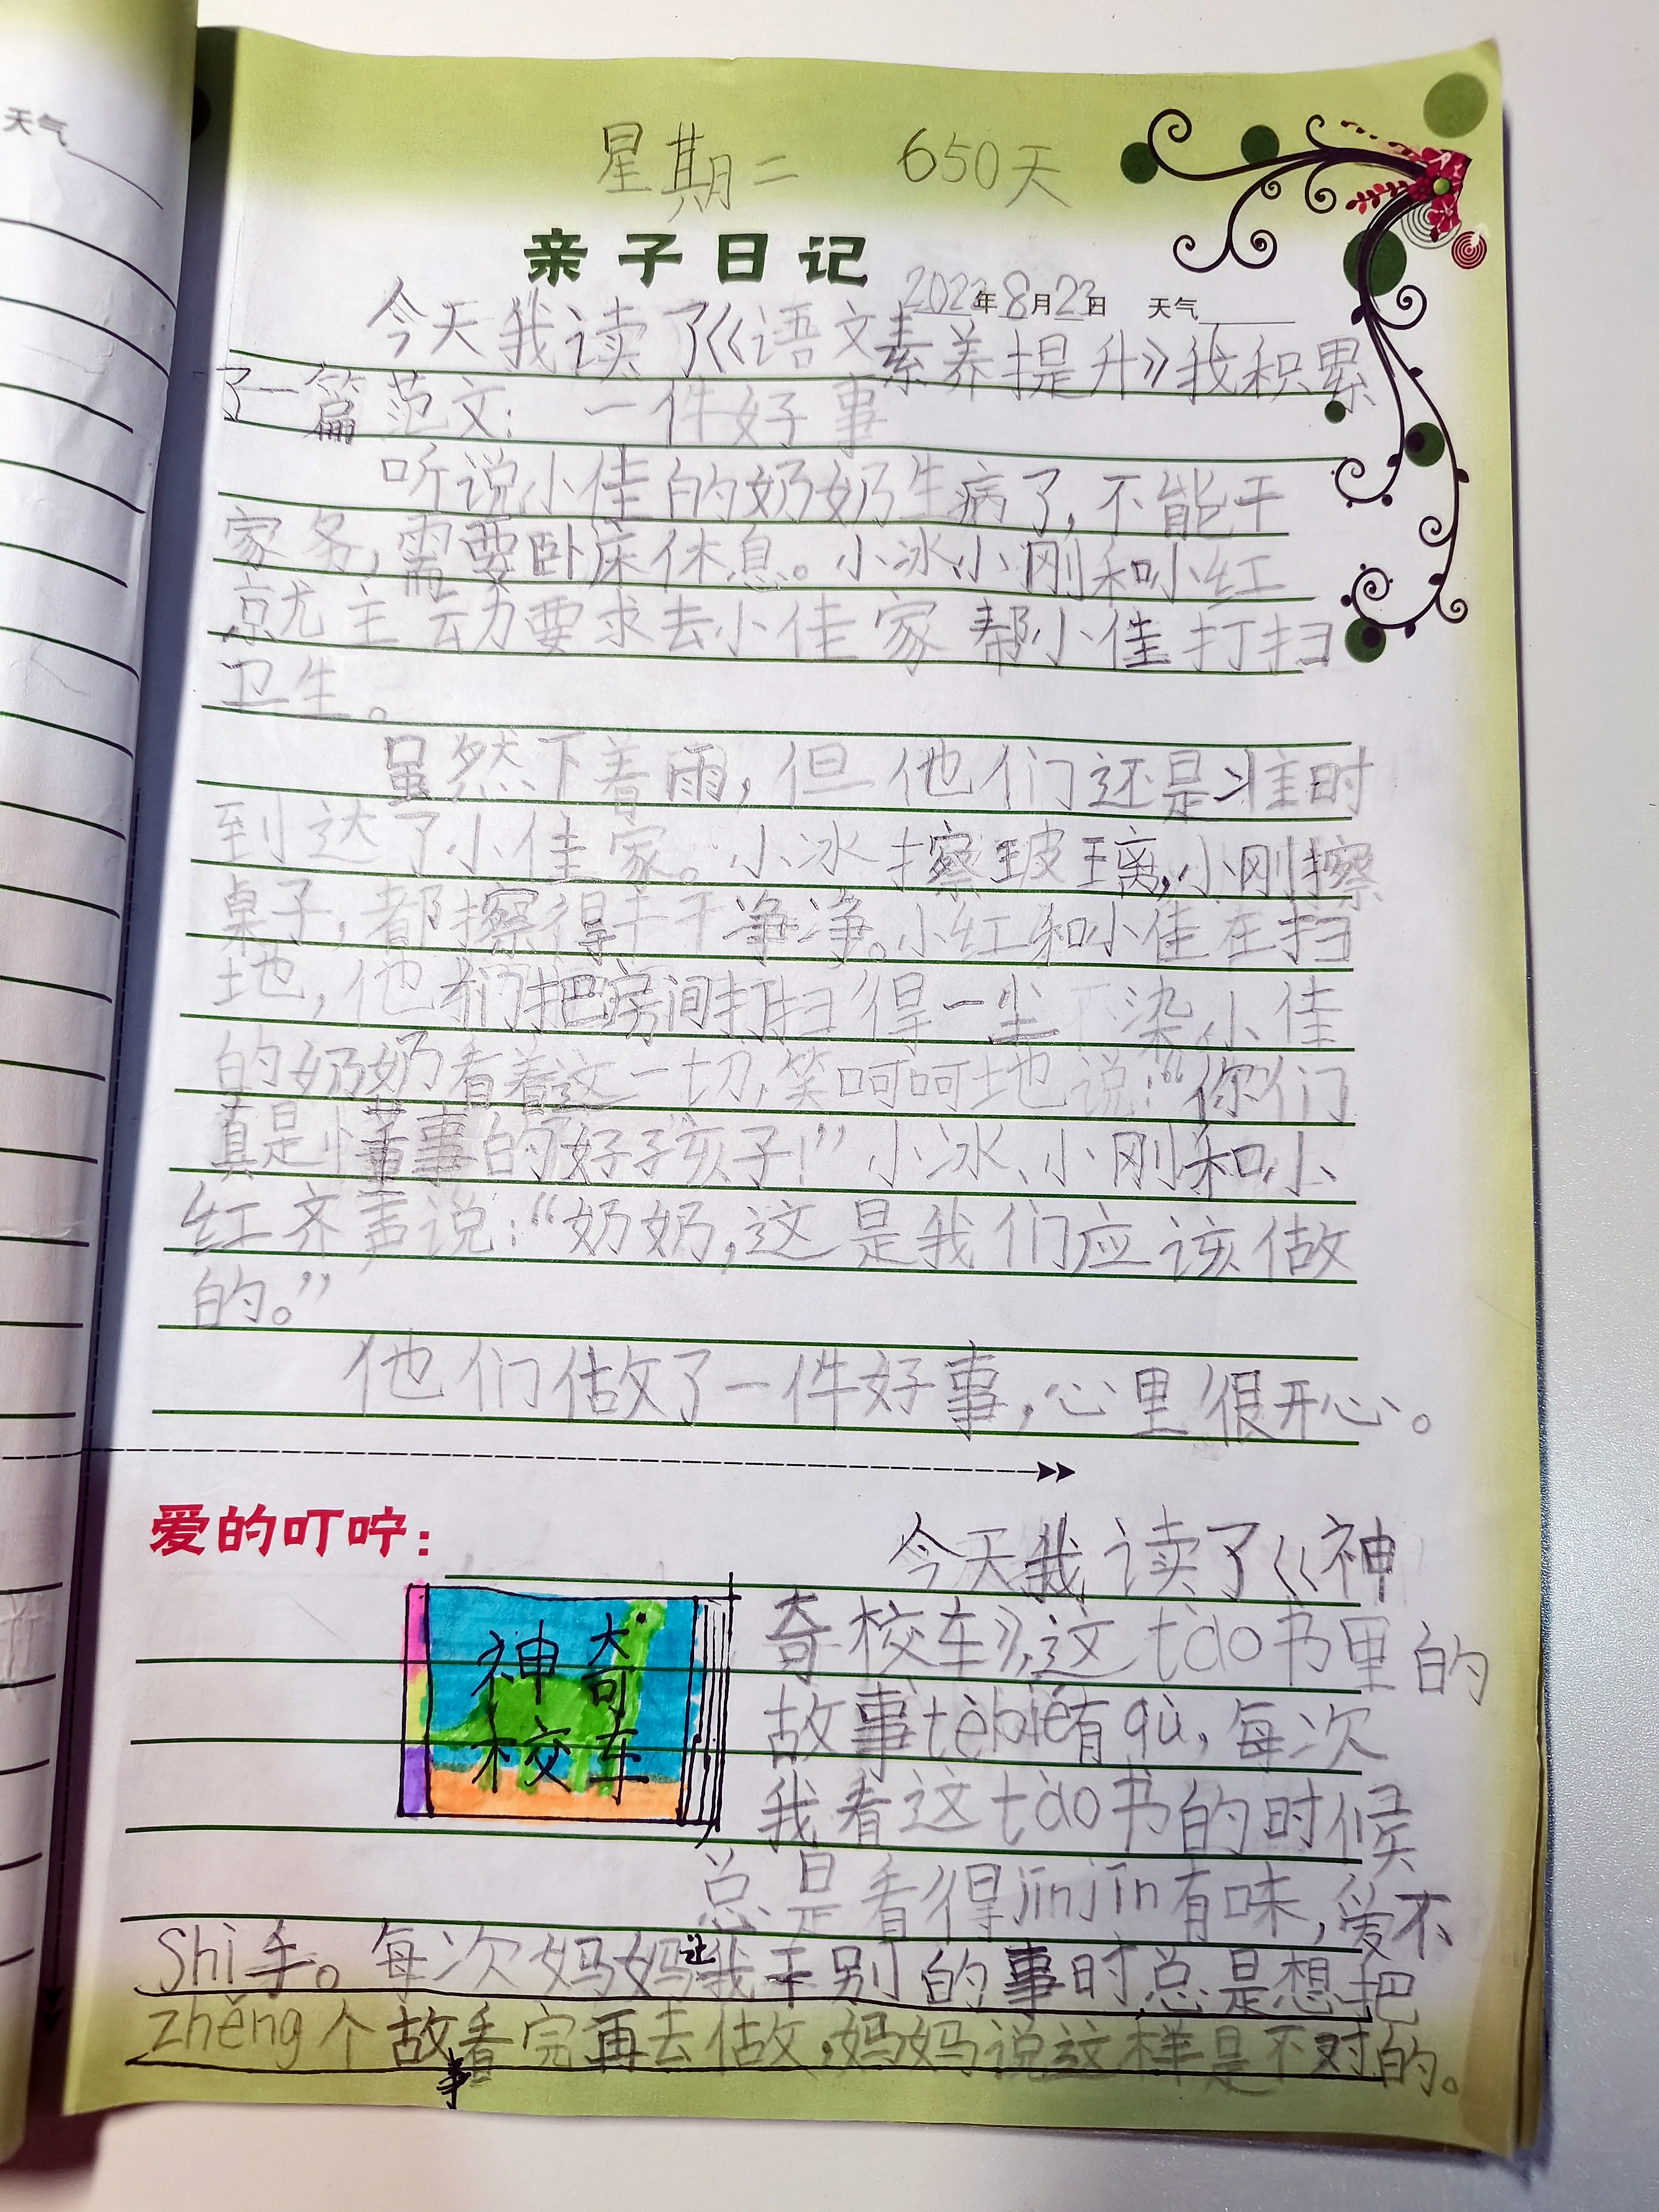 天气
星期二 650天
亲子日记
2022年8月23日 天气
今天我读了《语文素养提升》我积累
了一篇范文：一件好事
听说小佳的奶奶生病了，不能干
家务，需要卧床休息。小冰、小刚和小红
就主动要求去小佳家帮小佳打扫
卫生。
虽然下着雨，但他们还是准时
到达了小佳家。小冰擦玻璃，小刚擦
桌子，都擦得干干净净。小红和小佳在扫
地，他们把房间打扫得一尘不染。小佳
的奶奶看着这一切，笑呵呵地说：“你们
真是懂事的好孩子！”小冰、小刚和小
红齐声说：“奶奶，这是我们应该做
的。”
他们做了一件好事，心里很开心。
爱的叮咛：
今天我读了《神
奇校车》，这tào书里的
故事tèbié有qù，每次
我看这tào书的时候
总是看得jīnjīn有味，爱不
Shì手。每次妈妈让我干别的事时总是想把
zhěng个故事看完再去做，妈妈说这样是不对的。
神奇
校车